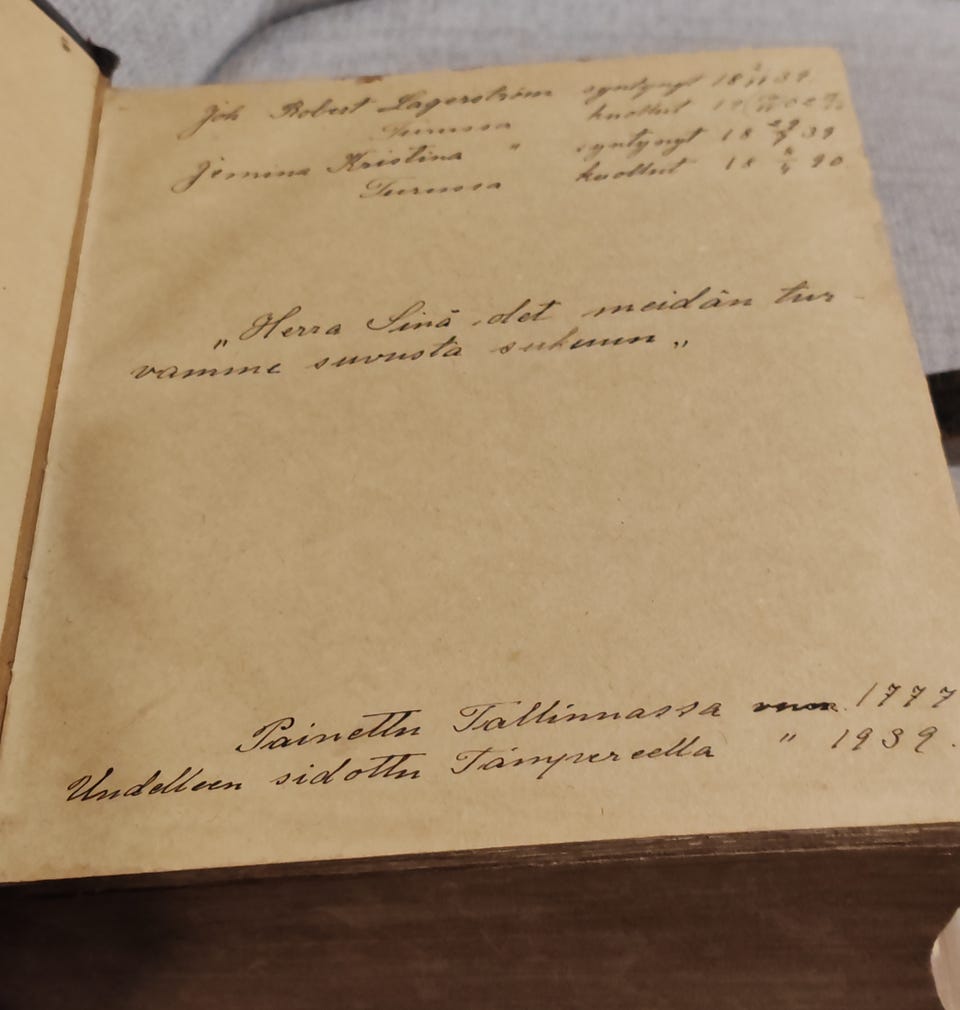 Joh Robert Lagerström syntynyt 18 2/11 39.
Turussa kuollut
Jemina Kristina " syntynyt 18 29/9 39
Turussa kuollut 18 90
„Herra Sinä olet meidän tur-
vamme suvusta sukuun„
Painettu Tallinnassa vuon. 1777
Uudelleen sidottu Tampereella " 1939.